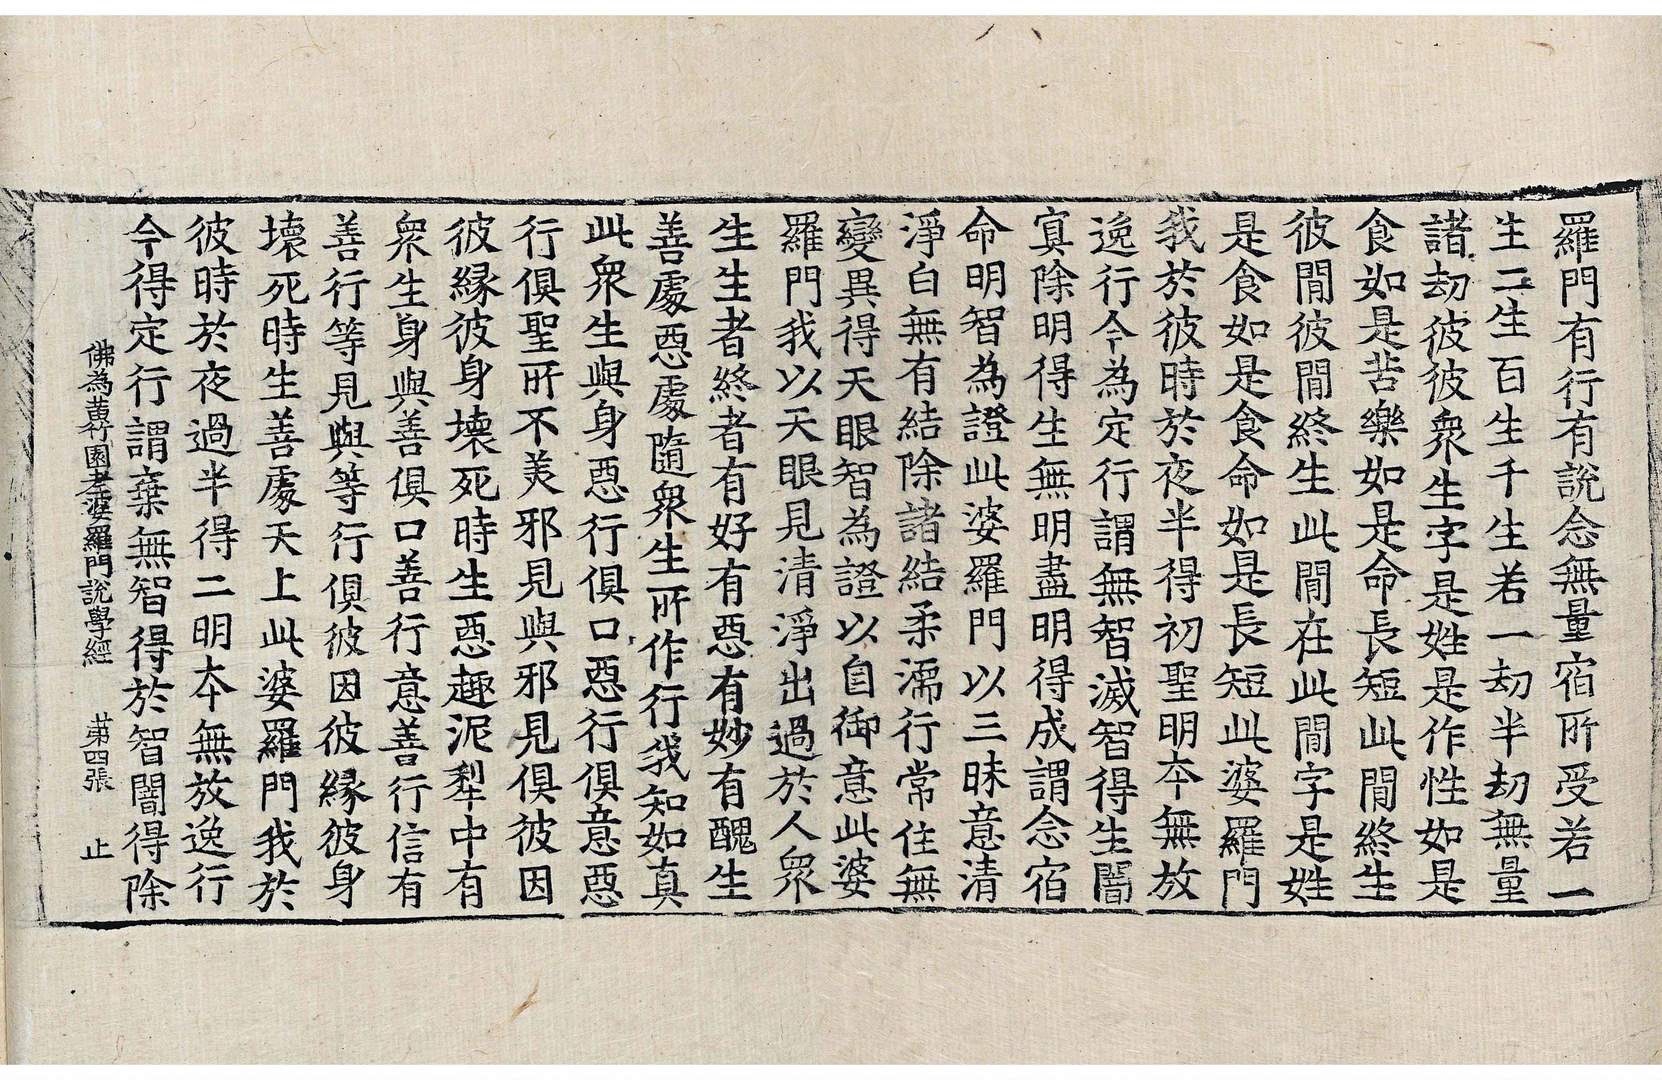 羅門有行有說念無量宿所受若一
生二生百生千生若一劫半劫無量
諸劫彼彼衆生字是姓是作性如是
食如是苦樂如是命長短此閒終生
彼閒彼閒終生此閒在此閒字是姓
是食如是食命如是長短此婆羅門
我於彼時於夜半得初聖明本無放
逸行今為定行謂無智滅智得生闇
寘除明得生無明盡明得成謂念宿
命明智為證此婆羅門以三昧意清
淨白無有結除諸結柔濡行常住無
變異得天眼智為證以自御意此婆
羅門我以天眼見清淨出過於人衆
生生者終者有好有惡有妙有醜生
善處惡處隨衆生所作行我知如真
此衆生與身惡行俱口惡行俱意惡
行俱聖所不美邪見與邪見俱彼因
彼緣彼身壞死時生惡趣泥犁中有
衆生身與善俱口善行意善行信有
善行等見與等行俱彼因彼緣彼身
壞死時生善處天上此婆羅門我於
彼時於夜過半得二明本無放逸行
今得定行謂棄無智得於智闇得除
佛為黃竹園老婆羅門說學經 苐四張 止